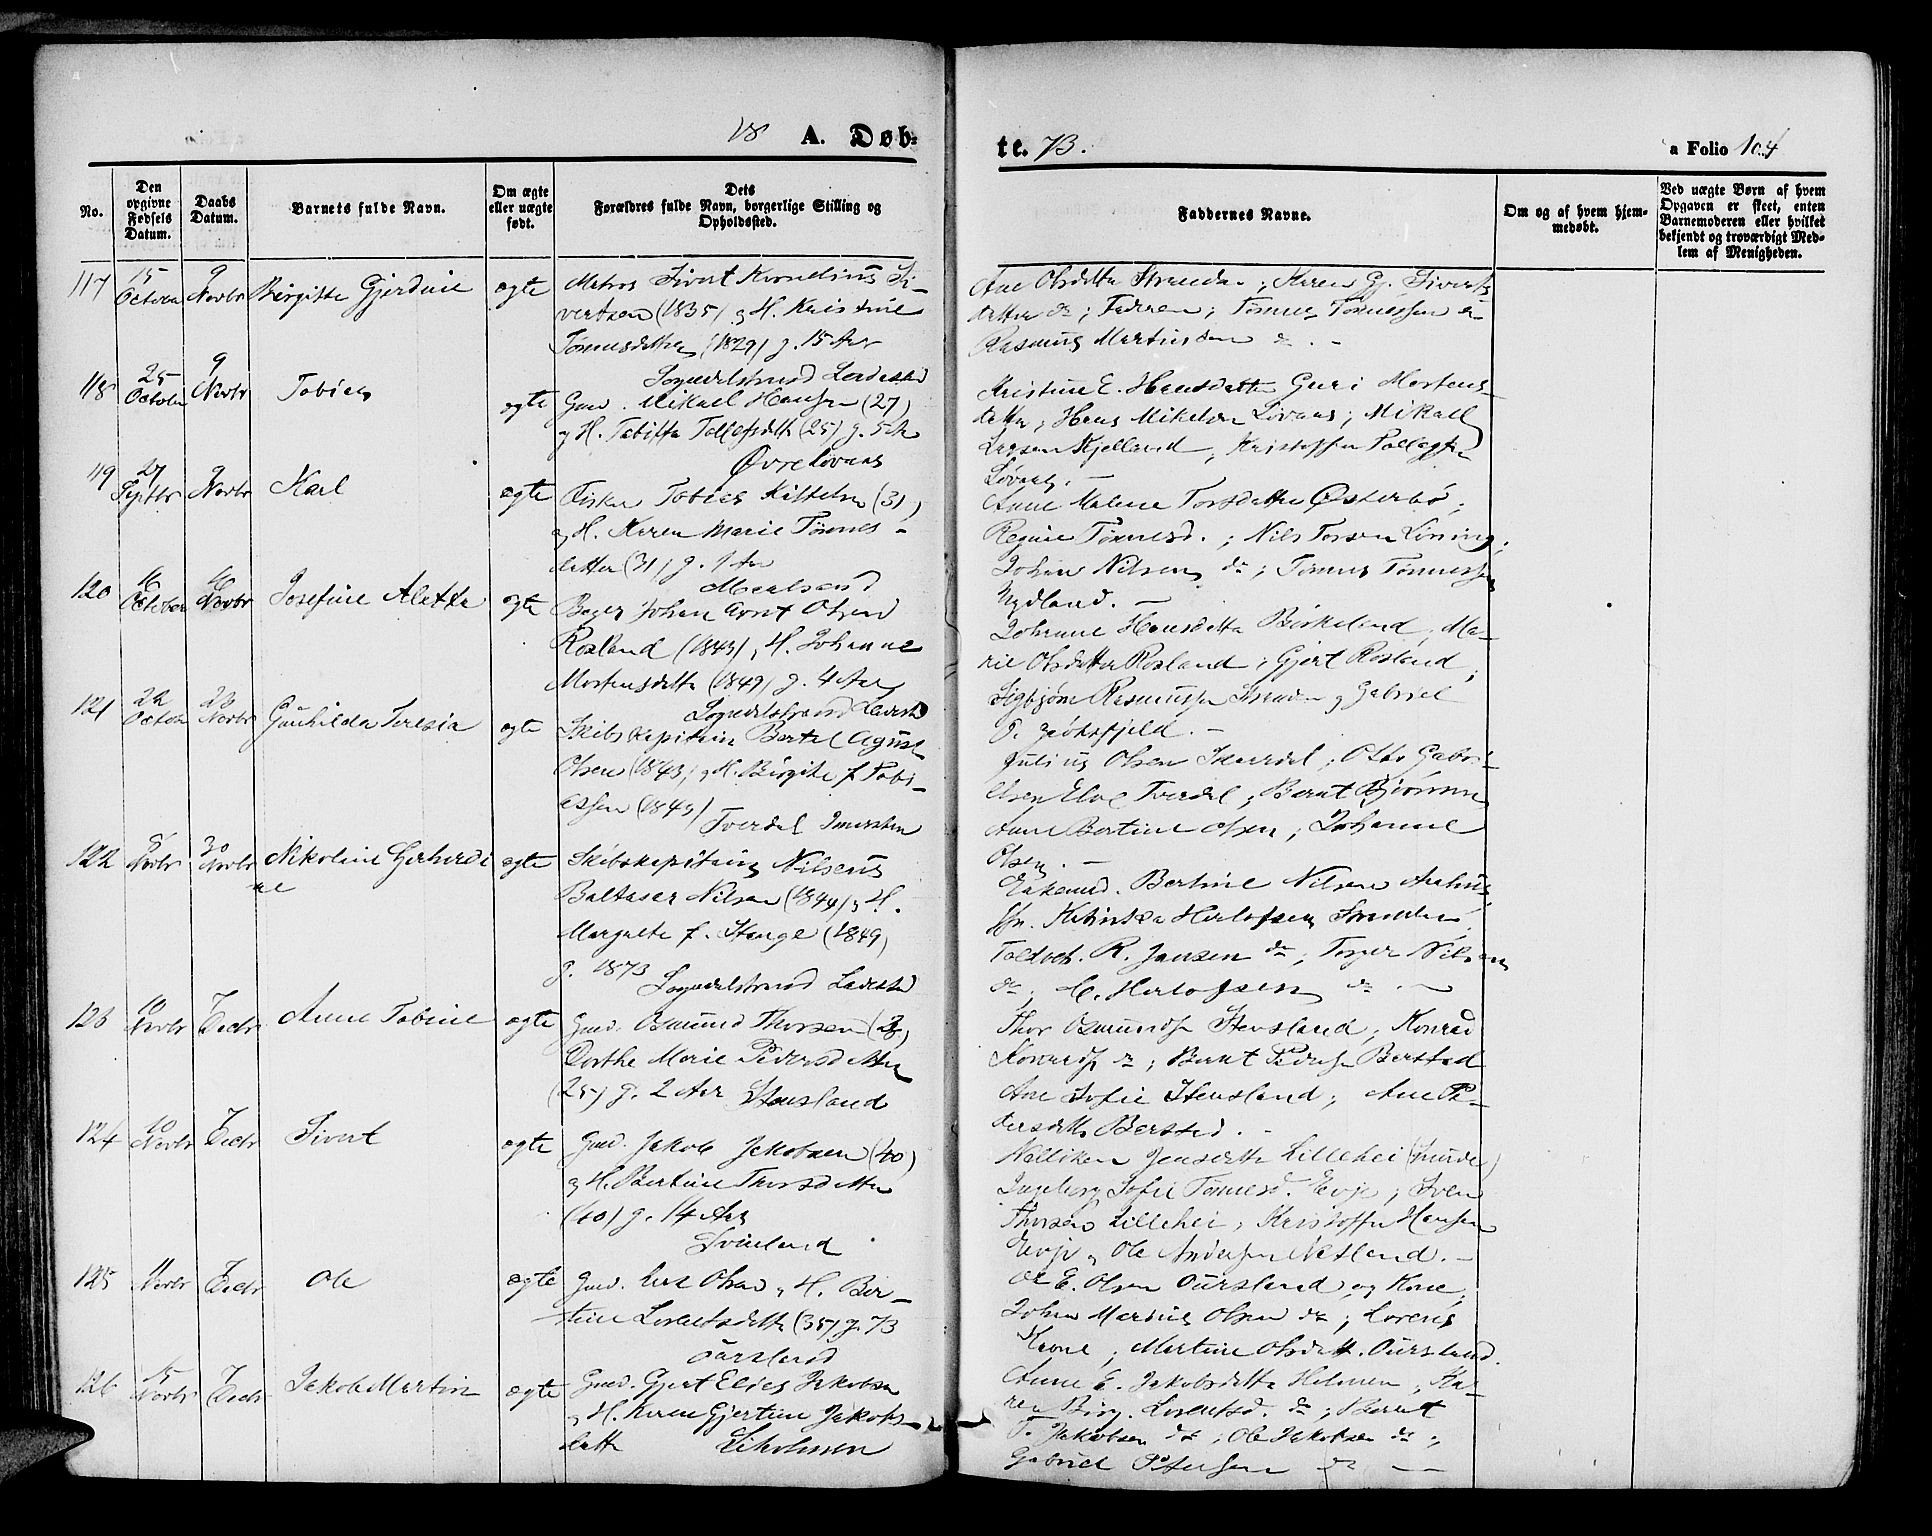 18 A. Døb-
te. 73.
a Folio 104
No.
Den opgivne Fødsels Datum.
Daabs Datum.
Barnets fulde Navn.
Om ægte eller uægte født.
Dets Forældres fulde Navn, borgerlige Stilling og Opholdssted.
Faddernes Navne.
Om og af hvem hjem-
medøbt.
Ved uægte Børn af hvem
Opgaven er skeet, enten
Barnemoderen eller hvilket
bekjendt og troværdigt Med-
lem af Menigheden.
117 15 October 9 Novbr Birgitte Gjerdine ægte
Matros Sivert Kornelius Si-
vertsen (1835) og H. Kristine
Tønnesdatter (1829) g. 15 Aar
Sogndalstrand Ladested
Ane Olsdatter Stranden; Karen Gj. Siverts
datter do; Faderen; Tønnes Tønnessen do
Rasmus Martinsen do. -
118 25 October 9 Novbr Tobias ægte
Gmd. Mikael Hansen (27)
og H. Tabitha Tollefsdatter (25) g. 5 Aar
Øvre Løvaas
Kristine E. Hansdatter Guri Mortens-
datter; Hans Mikelsen Løvaas; Mikael
Larsen Kjelland; Kristoffer
Løvaas. -
119 27 Septbr 9 Novbr Karl ægte
Fisker Tobias Kittelsen (31)
og H. Karen Marie Tønnes-
datter (31) g. 9 Aar
Anne Malene Torsdatter Østerbø;
Regine Tønnesd.; Nils Torsen Løining;
Johan Nilsen do; Tønnes Tønnessen
Nydland. -
120 16 October 16 Novbr Josefine Aletta ægte
Bager Johan Arnt Olsen
Rosland (1843) og H. Johanne
Mortensdatter (1849) g. 4 Aar
Sogndalstrand Ladested
Johanne Hansdatter Birkeland; Ma-
rie Olsdatter Rosland; Gjert Rosland;
Sigbjørn Rasmussen Stranden og Gabriel
P.
121 22 October 23 Novbr Gunhilda Teresia ægte
Skibskapitain Bertel August
Olsen (1843) og H. Birgite f. Tobi-
assen (1843)
Tverdal
Julius Olsen; Otto Gabri-
elsen Tverdal; Bernt Bjørnsen
Anne Bertine Olsen; Johanne
Olsen. -
122 9 Novbr 30 Novbr Nikoline Gerhardi
ne ægte
Skibskapitain Nilsenius
Baltasar Nilsen (1844) og H.
Margrete f. Stange (1849)
g. 1873 Sogndalstrand Ladested
Enkemd. Bertine Nilsen
Frk. Katinka Herlofsen Stranden;
Toldvet. R. Jansen do; Torger Nilsen
do; C. Herlofsen do -
123 10 Novbr 7 Decbr Anne Tobine ægte
Gmd. Osmund Thorsen
Dorthe Marie Pedersdatter
(25) g. 2 Aar Stensland
Thor Osmundsen Stensland; Konrad
Konradsen do; Bernt Pedersen Berstad
Ane Sofie Stensland; Ane Pe-
dersdatter Berstad. -
124 10 Novbr 7 Decbr Sivert ægte
Gmd. Jakob Jakobsen (40)
og H. Bertine Thorsdatter
(40) g. 14 Aar
Svinland
Valliken Jensdatter Lillehei
Ingeborg Sofie Tønnesd. Eeje; Sven
Thorsen Lillehei; Kristoffer Hansen
Eeje og Ole Andersen Nesland. -
125 11 Novbr 7 Decbr Ole ægte
Gmd. Lars Olsen og H. Ber-
tine Lorentsdatter (35) g. 73
Aarsland
Ole E. Olsen Aarsland og Kone;
Johan Mardius Olsen do; Lorents
Kone; Martine Olsdatter Aarsland.
126 15 Novbr 7 Decbr Jakob Martin ægte
Gmd. Gjert Elias Jakobsen
og H. Karen Gjertine Jakobs-
datter
Anne E. Jakobsdatter Holmen; Ka-
ren Birg. Lorentsd. do; Bernt
T. Jakobsen do; Ole Jakobsen do;
Gabriel Petersen do -